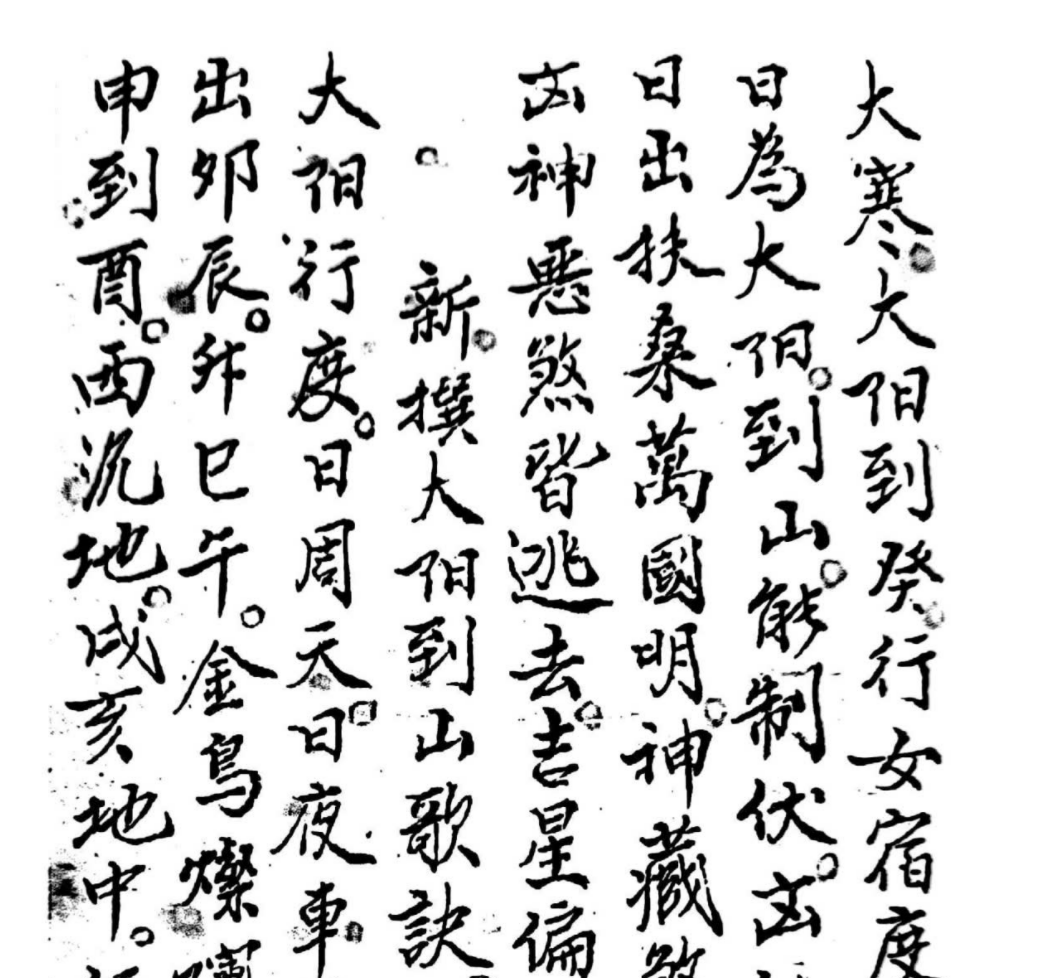 大寒大阳到癸行女宿度
日為大阳到山能制伏凶
日出扶桑萬國明神藏
凶神惡煞皆逃去吉星偏
新撰大阳到山歌訣
大阳行度日周天日夜車
出卯辰升巳午金烏燦
申到酉西沉地戌亥地中